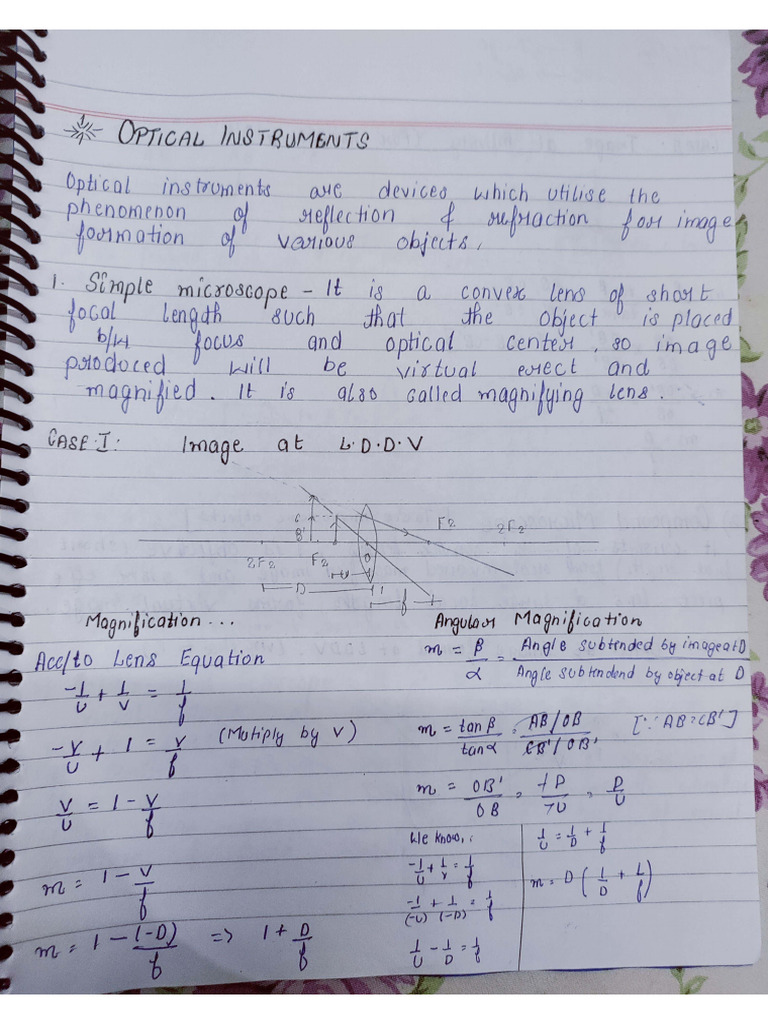 OPTICAL INSTRUMENTS
Optical instruments are devices which utilise the
phenomenon of reflection & refraction for image
formation of various objects.
1. Simple microscope - It is a convex lens of short
focal length such that the object is placed
b/w focus and optical center, so image
produced will be virtual erect and
magnified. It is also called magnifying lens.
CASE·I: Image at L·D·D·V
F2 2F2
2F2 F2 O
D f
Magnification...
Acc/to Lens Equation
-1/u + 1/v = 1/f
-v/u + 1 = v/f (Mutiply by V)
v/u = 1 - v/f
m = 1 - v/f
m = 1 - (-D)/f => 1 + D/f
Angular Magnification
m = β/α = Angle subtended by image at D / Angle subtendend by object at D
m = tanβ/tanα = AB/OB / CB'/OB' [∵ AB=CB']
m = OB'/OB = +D/+U = D/U
We know,
-1/u + 1/v = 1/f
-1/(-u) + 1/(-D) = 1/f
1/U - 1/D = 1/f
1/U = 1/D + 1/f
m = D (1/D + 1/f)